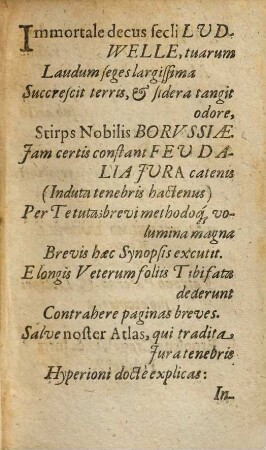 Immortale decus secli LUD-
WELLE, tuarum
Laudum seges largissima
Succrescit terris, & sidera tangit
odore,
Stirps Nobilis BORUSSIÆ.
Jam certis constant FEUDA-
LIA JURA catenis
(Induta tenebris hactenus)
Per Te tuta: brevi methodoq́, vo-
lumina magna
Brevis hæc Synopsis excutit.
E longis Veterum foliis Tibi fata
dederunt
Contrahere paginas breves.
Salve noster Atlas, qui tradita
Jura tenebris
Hyperioni doctè explicas:
In-